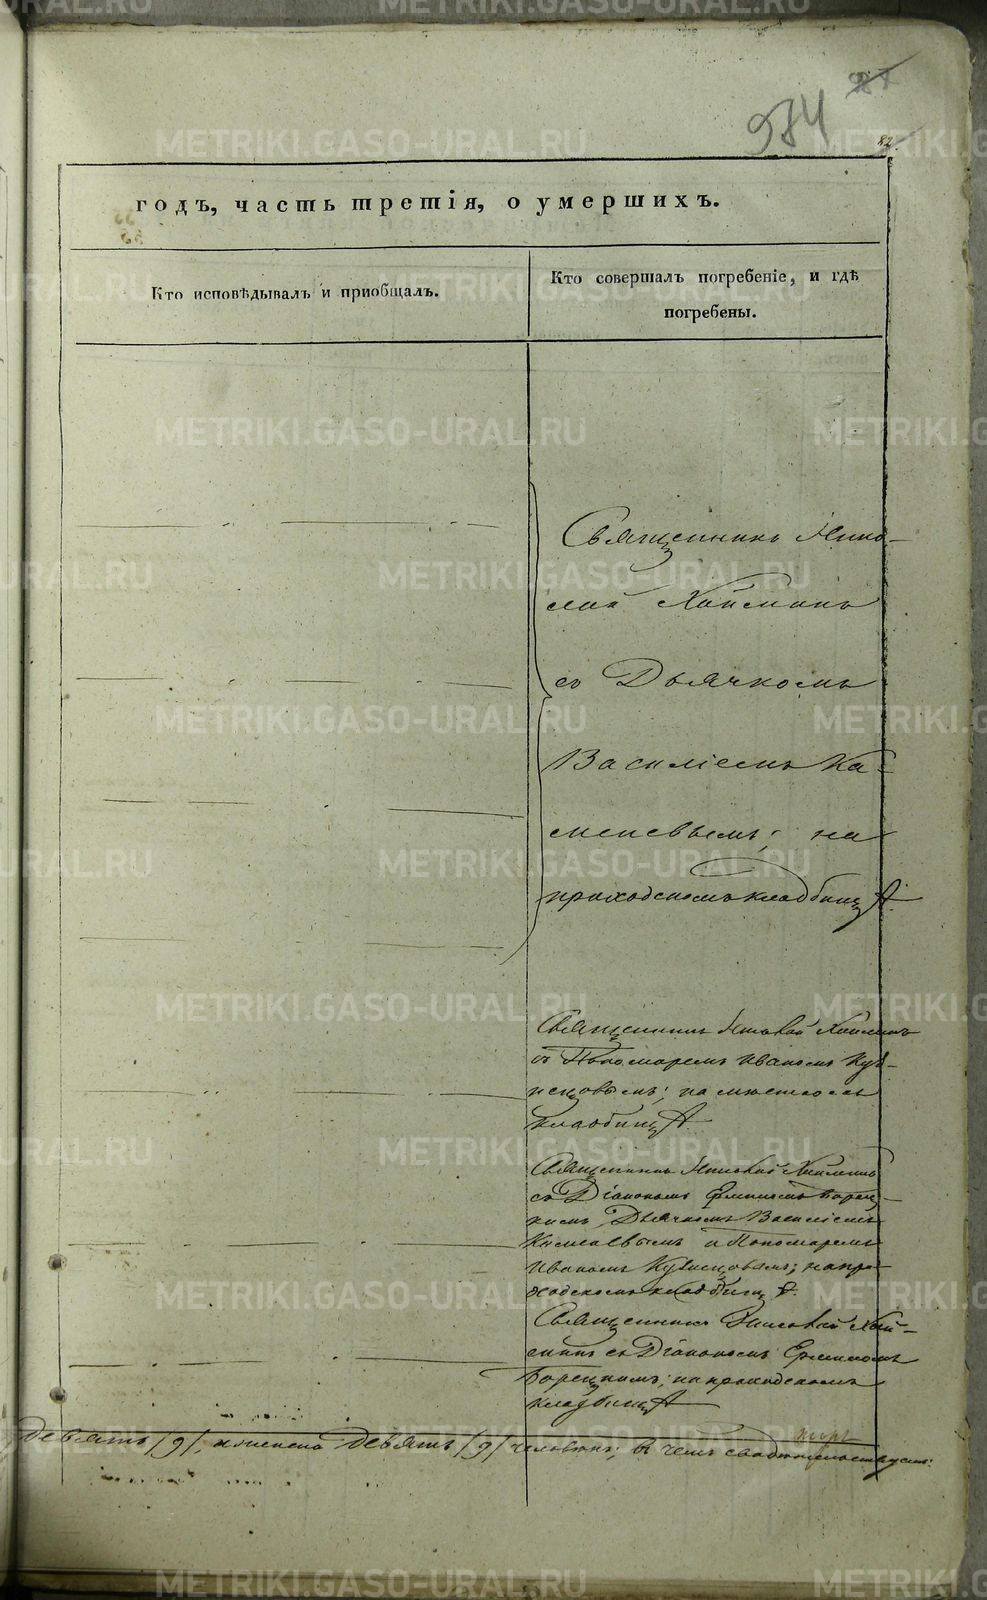 METRIKI.GASO-URAL.RU
984
82.
годъ, часть третія, о умершихъ.
Кто исповѣдывалъ и приобщалъ.
Кто совершалъ погребеніе, и гдѣ
погребены.
Священникъ Нико-
лай
съ Дьячкомъ
Василіемъ Ка-
на
приходскомъ кладбищѣ
Священникъ Николай
съ Пономаремъ Иваномъ Куз-
нецовымъ; на мѣстномъ
кладбищѣ
Священникъ Николай
съ Діакономъ Борец-
кимъ, Дьячкомъ Василіемъ
и Пономаремъ
Иваномъ Кузнецовымъ; на при-
ходскомъ кладбищѣ
Священникъ Николай
съ Діакономъ
Борецкимъ; на приходскомъ
кладбищѣ
девять /9/ женска девять /9/ человѣкъ; въ чемъ свидѣтельствуемъ: